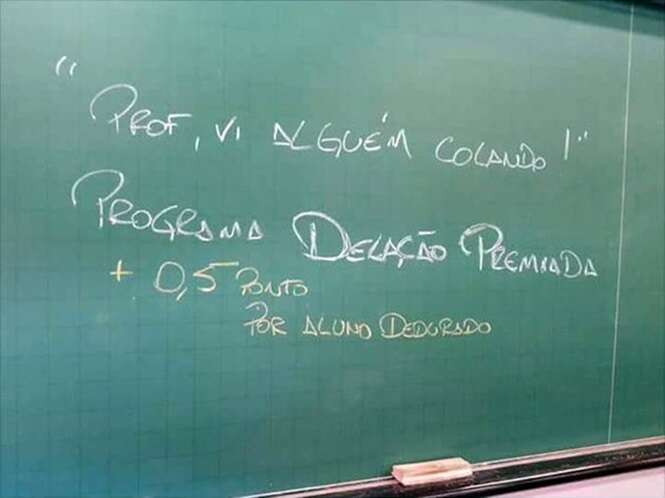 "PROF, VI ALGUÉM COLANDO!"
PROGRAMA DELAÇÃO PREMIADA
+ 0,5 PONTO
POR ALUNO DEDURADO